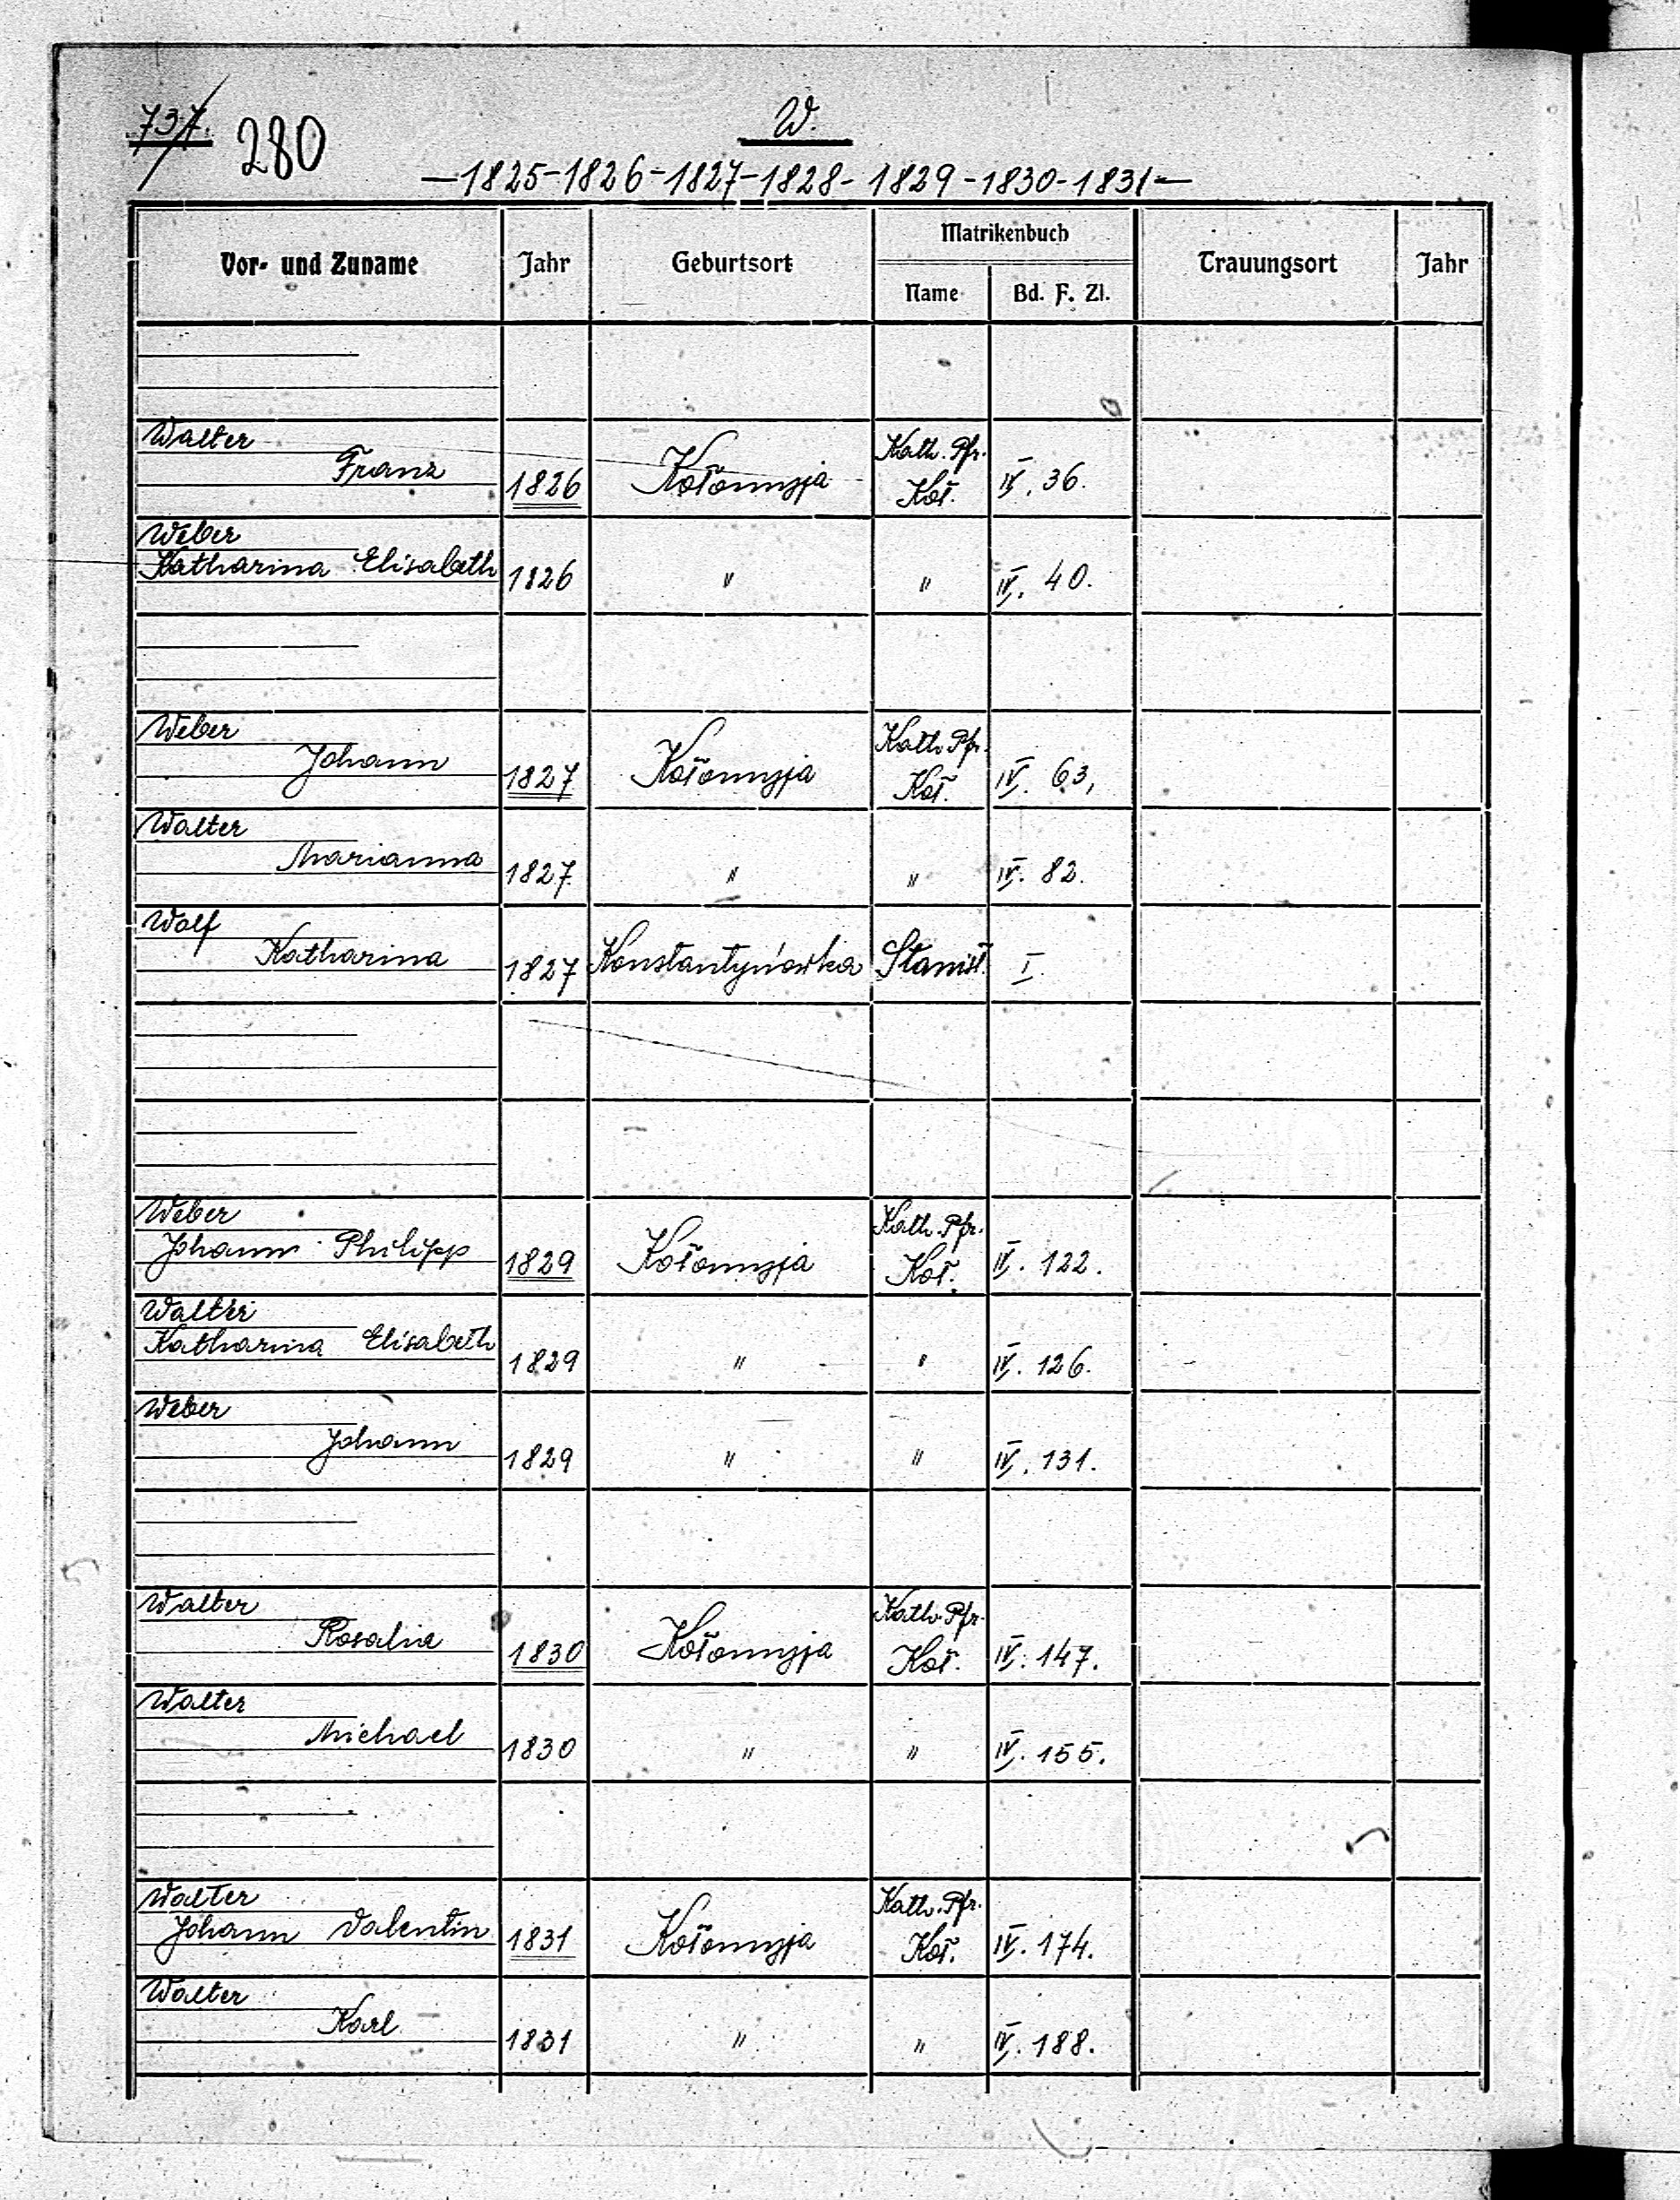 737. 280 W.
—1825-1826-1827-1828-1829-1830-1831—
Vor- und Zuname Jahr Geburtsort Matrikenbuch Trauungsort Jahr
Name Bd. F. Zl.
Walter
Franz 1826 Kołomyja Kath. Pfr. Koł. IV. 36.
Weber
Katharina Elisabeth 1826 " " IV. 40.
Weber
Johann 1827 Kołomyja Kath. Pfr. Koł. IV. 63,
Walter
Marianna 1827. " " IV. 82.
Wolf
Katharina 1827 Konstantynówka Stanisł. I.
Weber
Johann Philipp 1829 Kołomyja Kath. Pfr. Koł. IV. 122.
Walter
Katharina Elisabeth 1829 " " IV. 126.
Weber
Johann 1829 " " IV. 131.
Walter
Rosalia 1830 Kołomyja Kath. Pfr. Koł. IV. 147.
Walter
Michael 1830 " " IV. 155.
Walter
Johann Valentin 1831 Kołomyja Kath. Pfr. Koł. IV. 174.
Walter
Karl 1831 " " IV. 188.